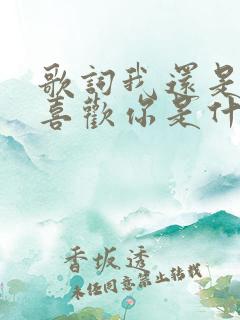 歌詞我還是
喜歡你是什
香坂透
未任同意禁止转载